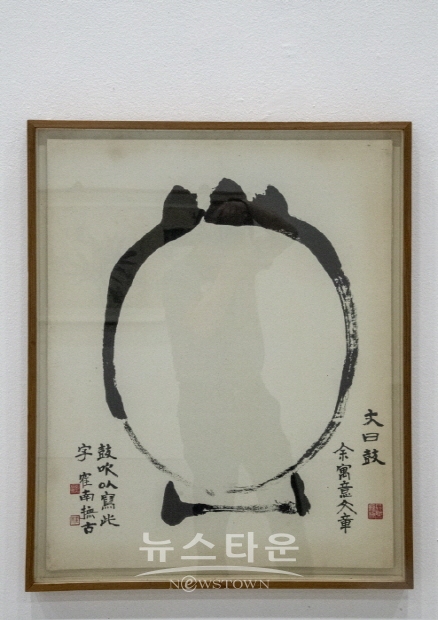 文曰鼓
余寓意文章
鼓吹以寫此
字 隺南撫古
뉴스타운
NEWSTOWN